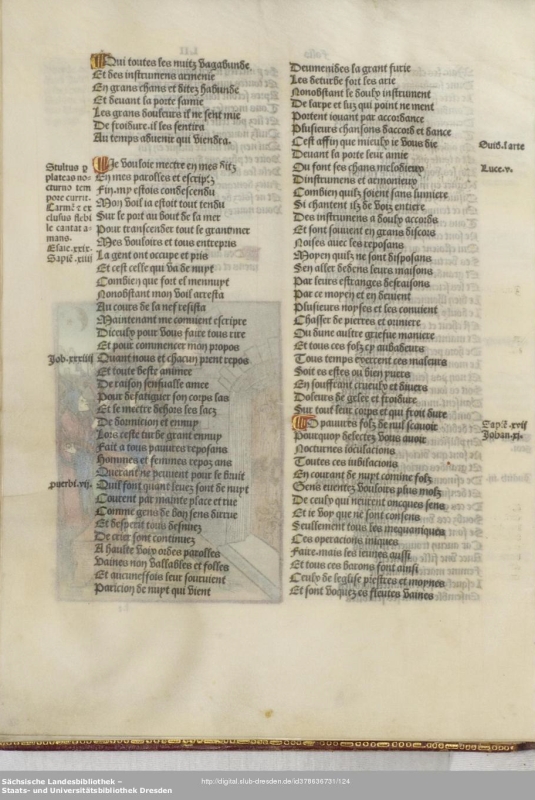 Qui toutes les nuitz vagabunde
Et des instrumens armenie
En grans chans et ditez habunde
Et devant la porte samie
Les grans douleurs il ne sent mie
De froidure. il les sentira
Au temps advenir qui viendra.
Je vouloie mectre en mes ditz
En mes parolles et escriptz
Fin. my estois condescendu
Mon voil ia estoit tout tendu
Sur le port au bout de la mer
Pour transcender tout le grant mer
Mes vouloirs et tous entrepris
La gent ont occupe et pris
Et cest celle qui va de nuyt
Combien que fort el mennuyt
Nonobstant mon voil arresta
Au cours de la nef resista
Maintenant me convient escripre
D'iceulx pour vous faire tous rire
Et pour commencer mon propos
Quant nous et chacun prent repos
Et toute beste animee
De raison sensualle amee
Pour de fatiguer son corps las
Et le mectre dehors les lacz
De dormicion et ennuy
Lors ceste turbe grant ennuy
Fait a tous pauvres reposans
Hommes et femmes repozans
Querant ne peuvent pour le bruit
Quilz font quant levez sont de nuyt
Courent par mainte place et rue
Comme gens de bon sens dirrue
Et despent tous desnuez
De crier sont continuez
A haulte voix ordes parolles
Vaines non vallables et folles
Et aucuneffois leur souvient
Paricion de nuyt qui vient
Stultus p
plateas no-
cturno tem
pore currit.
Carmē z ex
clusus flebi
le cantat a-
mans.
Esaie. xxix.
Sapiē. xiiii
Job. xxxiiii
puerbi. vij.
Deumenides la grant furie
Les deturbe fort les arie
Nonobstant le doulx instrument
De larpe et luz qui point ne ment
Portent iouant par accordance
Plusieurs chansons daccord et dance
Cest affin que mieulx ie vous die
Devant la porte leur amie
Ou font ses chans melodieux
Dinstrumens et armonieux
Combien quilz soient sans lumiere
Si chantent ilz de voix entiere
Des instrumens a doulx accords
Et sont souvent en grans discors
Noises avec les reposans
Moyen quilz ne sont disposans
Sen aller dedens leurs maisons
Par leurs estranges desraisons
Par ce moyen et en devient
Plusieurs noyses et les convient
Chasser de pierres et oriniere
Ou dune aultre griefve maniere
Et tous ces folz cy aubadeurs
Tous temps exercent ces maleurs
Soit es estes ou bien yvers
En souffrant crueulx et divers
Doleurs de gelee et froidure
Sur tout leur corps et qui fort dure
O pauvres folz de nul scavoir
Pourquoy delectez vous avoir
Nocturnes ioculacions
Toutes ces iubilacions
En courant de nuyt comme folz
Gens eventez vouloirs plus molz
De ceulx qui neurent oncques sens
Et ie voy que ne sont consens
Seullement tous les mequaniques
Ces operacions iniques
Faire. mais les ieunes aussi
Et tous ces barons sont ainsi
Ceulx de leglise prestres et moynes
Et sont voquez es fleutes vaines
Ouid. i. arte
Luce. v.
Sapiē. xvij
Johan. xi.
Sächsische Landesbibliothek –
Staats- und Universitätsbibliothek Dresden
http://digital.slub-dresden.de/id378636731/124